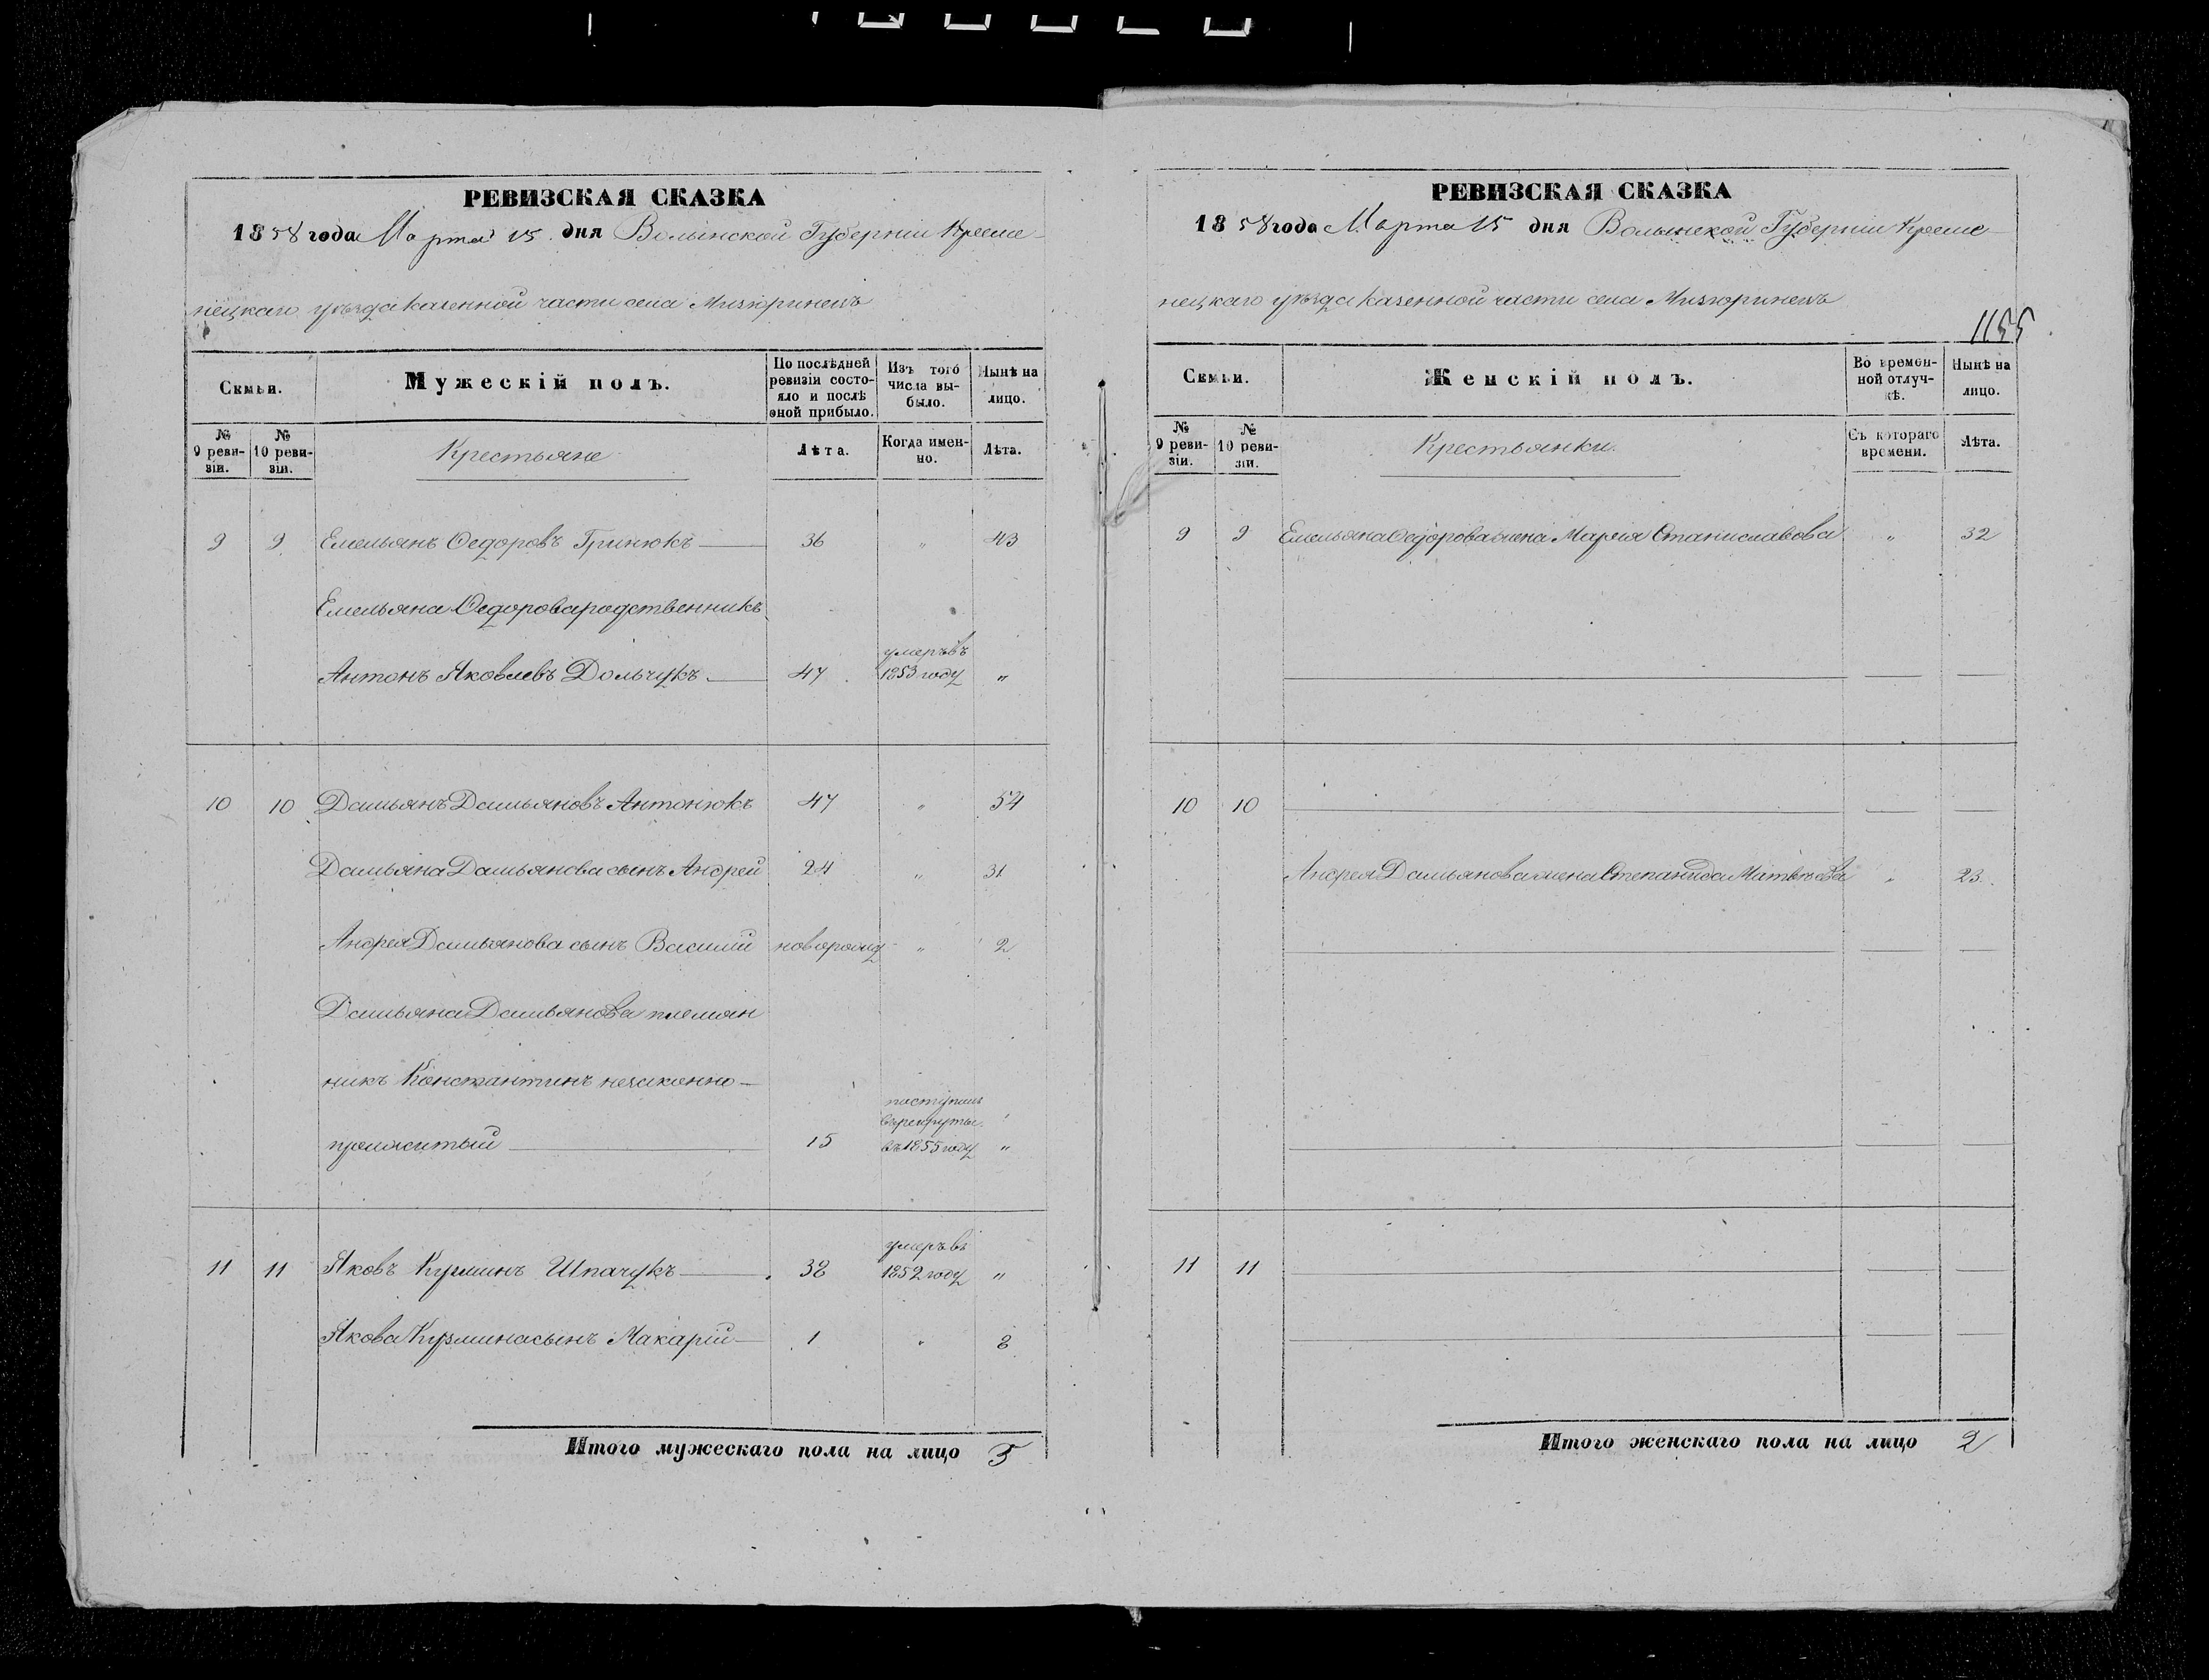 РЕВИЗСКАЯ СКАЗКА
1858 года Марта 15 дня Волынской Губерніи Креме-
нецкаго уѣзда казенной части села Мизюринецъ
Семьи.
Мужескій полъ.
По послѣдней ревизіи состояло и послѣ оной прибыло.
Изъ того числа выбыло.
Нынѣ на лицо.
№ 9 ревизіи.
№ 10 ревизіи.
Крестьяне
Лѣта.
Когда именно.
Лѣта.
9 9 Емельянъ Ѳедоровъ Гринюкъ 36 " 43
Емельяна Ѳедорова родственникъ
Антонъ Яковлевъ Дольчукъ 47 умеръ въ 1853 году "
10 10 Дамьянъ Дамьяновъ Антонюкъ 47 " 54
Дамьяна Дамьянова сынъ Андрей 24 " 31
Андрея Дамьянова сынъ Василій новорожд " 2
Дамьяна Дамьянова племян
никъ Константинъ незаконно-
прижитый 15 поступилъ въ рекруты въ 1855 году "
11 11 Яковъ Кузминъ Шпачукъ 38 умеръ въ 1852 году "
Якова Кузмина сынъ Макарій 1 " 8
Итого мужескаго пола на лицо 5
РЕВИЗСКАЯ СКАЗКА
1858 года Марта 15 дня Волынской Губерніи Креме-
нецкаго уѣзда казенной части села Мизюринецъ
1155
Семьи.
Женскій полъ.
Во временной отлучкѣ.
Нынѣ на лицо.
№ 9 ревизіи.
№ 10 ревизіи.
Крестьянки
Съ котораго времени.
Лѣта.
9 9 Емельяна Ѳедорова жена Марія Станиславова " 32
10 10
Андрея Дамьянова жена Степанида Матвѣева " 23
11 11
Итого женскаго пола на лицо 2